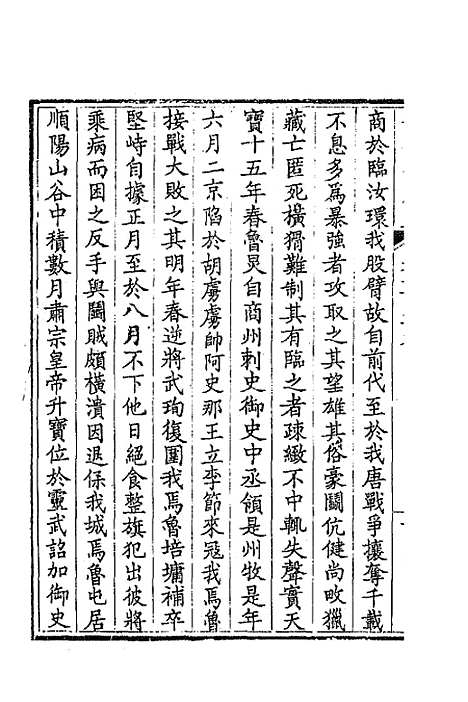 商於臨汝環我股臂故自前代至於我唐戰爭攘奪千載
不息多為暴強者攻取之其望雄其俗豪鬭伉健尚畋獵
藏亡匿死橫猾難制其有臨之者疎緻不中軌失聲實天
寶十五年春魯炅自商州刺史御史中丞領是州牧是年
六月二京陷於胡虜虜帥阿史那王立季節來寇我焉魯
接戰大敗之其明年春逆將武珣復圍我焉魯培墉補卒
堅峙自據正月至於八月不下他日絕食整旗犯出彼將
乘病而困之反手與鬭賊頗橫潰因退保我城焉魯屯居
順陽山谷中積數月肅宗皇帝升寶位於靈武詔加御史